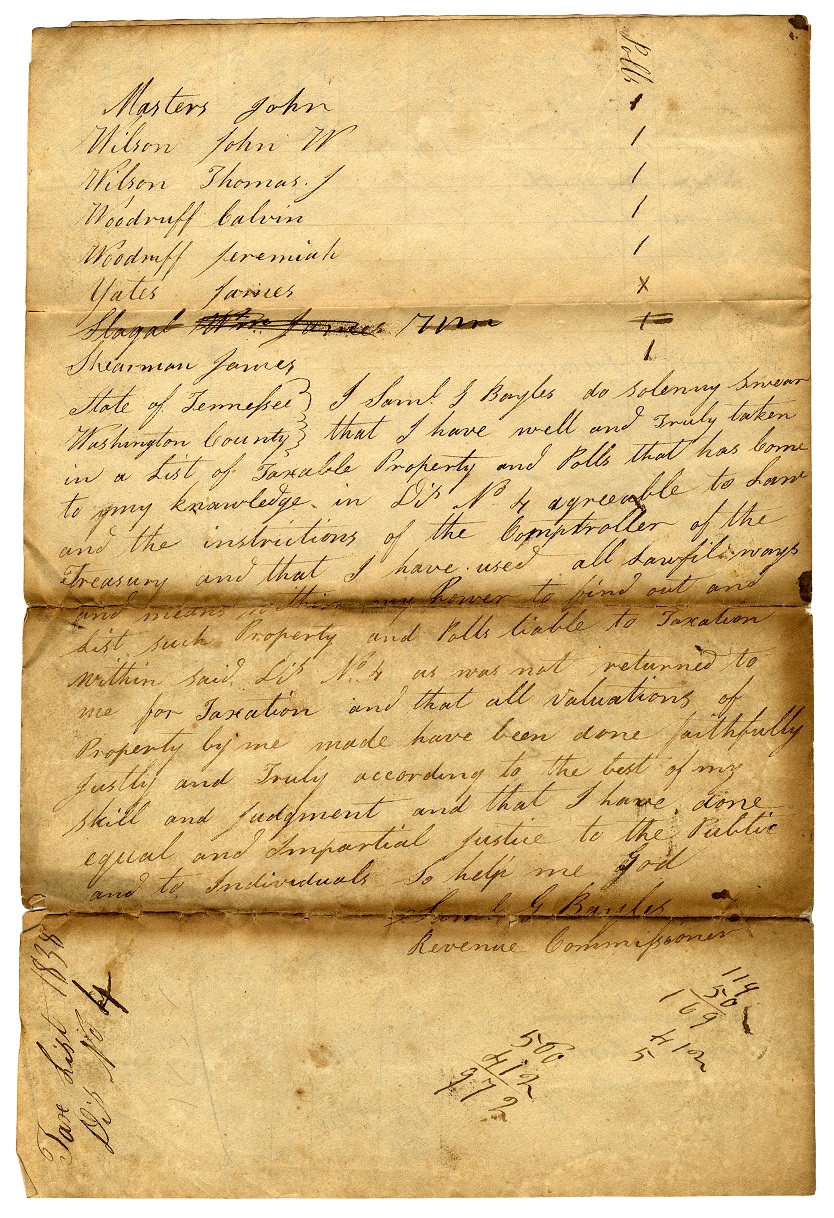 Polls
Masters John 1
Wilson John W 1
Wilson Thomas J 1
Woodruff Calvin 1
Woodruff Jeremiah 1
Yates James X
Slagal Wm James Wm 1
Shearman James 1
State of Tennessee } I Saml G Bayles do Solemny Swear
Washington County } that I have well and Truly taken
in a List of Taxable Property and Polls that has Come
to my knowledge in Dis No 4 agreeable to Law
and the instrictions of the Comptroller of the
Treasury and that I have used all Lawfil ways
and means within my Power to find out and
List such Property and Polls liable to Taxation
within said Dis No 4 as was not returned to
me for Taxation and that all valuations of
Property by me made have been done faithfully
Justly and Truly according to the best of my
skill and Judgment and that I have done
equal and Impartial Justice to the Public
and to Individuals So help me God
Saml G Bayles
Revenue Commissioner
Tax List 1838
Dis No 4
119
50
169
412
5
560
412
972